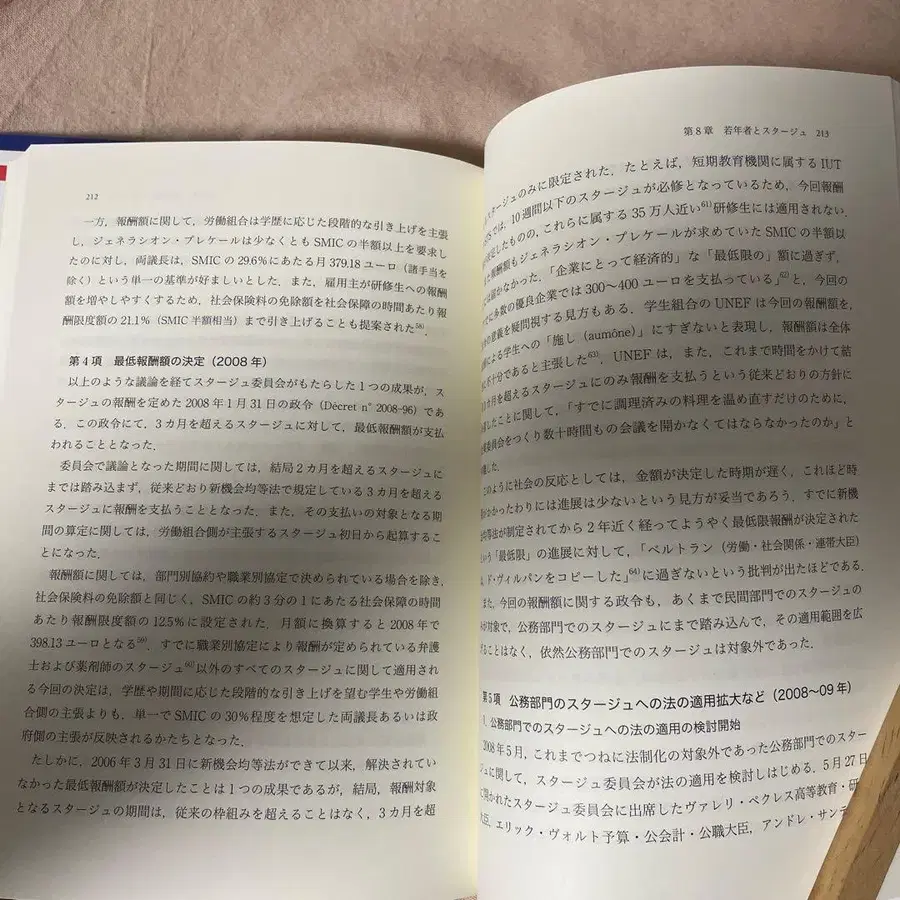 212
一方，報酬額に関して，労働組合は学歴に応じた段階的な引き上げを主張
し，ジェネラシオン・プレケールは少なくとも SMIC の半額以上を要求し
たのに対し，両議長は，SMIC の 29.6%にあたる月 379.18 ユーロ（諸手当を
除く）という単一の基準が好ましいとした．また，雇用主が研修生への報酬
額を増やしやすくするため，社会保険料の免除額を社会保障の時間あたり報
酬限度額の 21.1%（SMIC 半額相当）まで引き上げることも提案された58)．
第 4 項　最低報酬額の決定（2008 年）
以上のような議論を経てスタージュ委員会がもたらした 1 つの成果が，ス
タージュの報酬を定めた 2008 年 1 月 31 日の政令（Décret n° 2008-96）であ
る．この政令にて，3 カ月を超えるスタージュに対して，最低報酬額が支払
われることとなった．
委員会で議論となった期間に関しては，結局 2 カ月を超えるスタージュに
までは踏み込まず，従来どおり新機会均等法で規定している 3 カ月を超える
スタージュに報酬を支払うこととなった．また，その支払いの対象となる期
間の算定に関しては，労働組合側が主張するスタージュ初日から起算するこ
とになった．
報酬額に関しては，部門別協約や職業別協定で決められている場合を除き，
社会保険料の免除額と同じく，SMIC の約 3 分の 1 にあたる社会保障の時間
あたり報酬限度額の 12.5%に設定された．月額に換算すると 2008 年で
398.13 ユーロとなる59)．すでに職業別協定により報酬が定められている弁護
士および薬剤師のスタージュ60)以外のすべてのスタージュに関して適用され
る今回の決定は，学歴や期間に応じた段階的な引き上げを望む学生や労働組
合側の主張よりも，単一で SMIC の 30%程度を想定した両議長あるいは政
府側の主張が反映されるかたちとなった．
たしかに，2006 年 3 月 31 日に新機会均等法ができて以来，解決されてい
なかった最低報酬額が決定したことは 1 つの成果であるが，結局，報酬対象
となるスタージュの期間は，従来の枠組みを超えることはなく，3 カ月を超
第 8 章　若年者とスタージュ　213
スタージュのみに限定された．たとえば，短期教育機関に属する IUT
では，10 週間以下のスタージュが必修となっているため，今回報酬
定されたものの，これらに属する 35 万人近い61)研修生には適用されない．
報酬額もジェネラシオン・プレケールが求めていた SMIC の半額以
は届かなかった．「企業にとって経済的」な「最低限の」額に過ぎず，
でに多数の優良企業では 300〜400 ユーロを支払っている」62)と，今回の
の意義を疑問視する見方もある．学生組合の UNEF は今回の報酬額を，
による学生への「施し（aumône）」にすぎないと表現し，報酬額は全体
不十分であると主張した63)．UNEF は，また，これまで時間をかけて結
カ月を超えるスタージュにのみ報酬を支払うという従来どおりの方針に
したことに関して，「すでに調理済みの料理を温め直すだけのために，
委員会をつくり数十時間もの会議を開かなくてはならなかったのか」と
した．
このように社会の反応としては，金額が決定した時期が遅く，これほど時
かかったわりには進展は少ないという見方が妥当であろう．すでに新機
等法が制定されてから 2 年近く経ってようやく最低限報酬が決定された
いう「最低限」の進展に対して，「ベルトラン（労働・社会関係・連帯大臣）
は，ド・ヴィルパンをコピーした」64)に過ぎないという批判が出たほどである．
また，今回の報酬額に関する政令も，あくまで民間部門でのスタージュの
が対象で，公務部門でのスタージュにまで踏み込んで，その適用範囲を広
げることはなく，依然公務部門でのスタージュは対象外であった．
第 5 項　公務部門のスタージュへの法の適用拡大など（2008〜09 年）
公務部門でのスタージュへの法の適用の検討開始
2008 年 5 月，これまでつねに法制化の対象外であった公務部門でのスター
ジュに関して，スタージュ委員会が法の適用を検討しはじめる．5 月 27 日
に開かれたスタージュ委員会に出席したヴァレリ・ペクレス高等教育・研
大臣，エリック・ヴォルト予算・公会計・公職大臣，アンドレ・サンテ